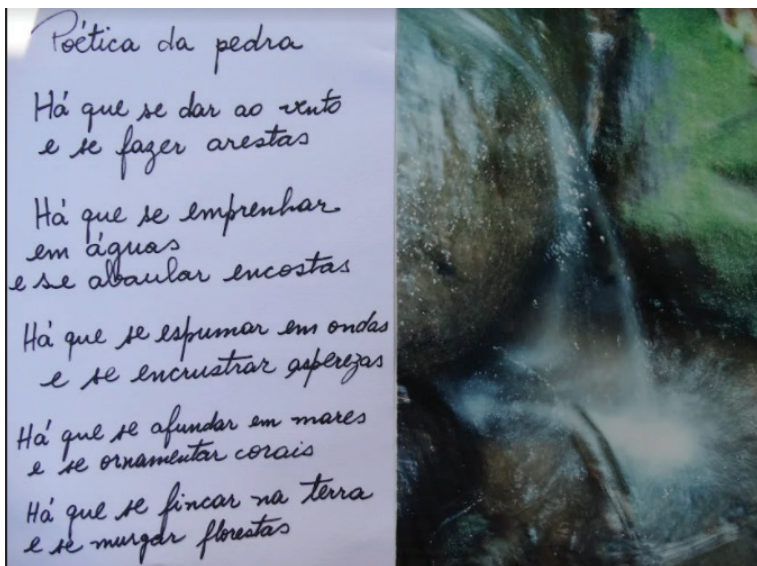 Poética da pedra
Há que se dar ao vento
e se fazer arestas
Há que se emprenhar
em águas
e se abaular encostas
Há que se espumar em ondas
e se encrustrar asperezas
Há que se afundar em mares
e se ornamentar corais
Há que se fincar na terra
e se murgar florestas